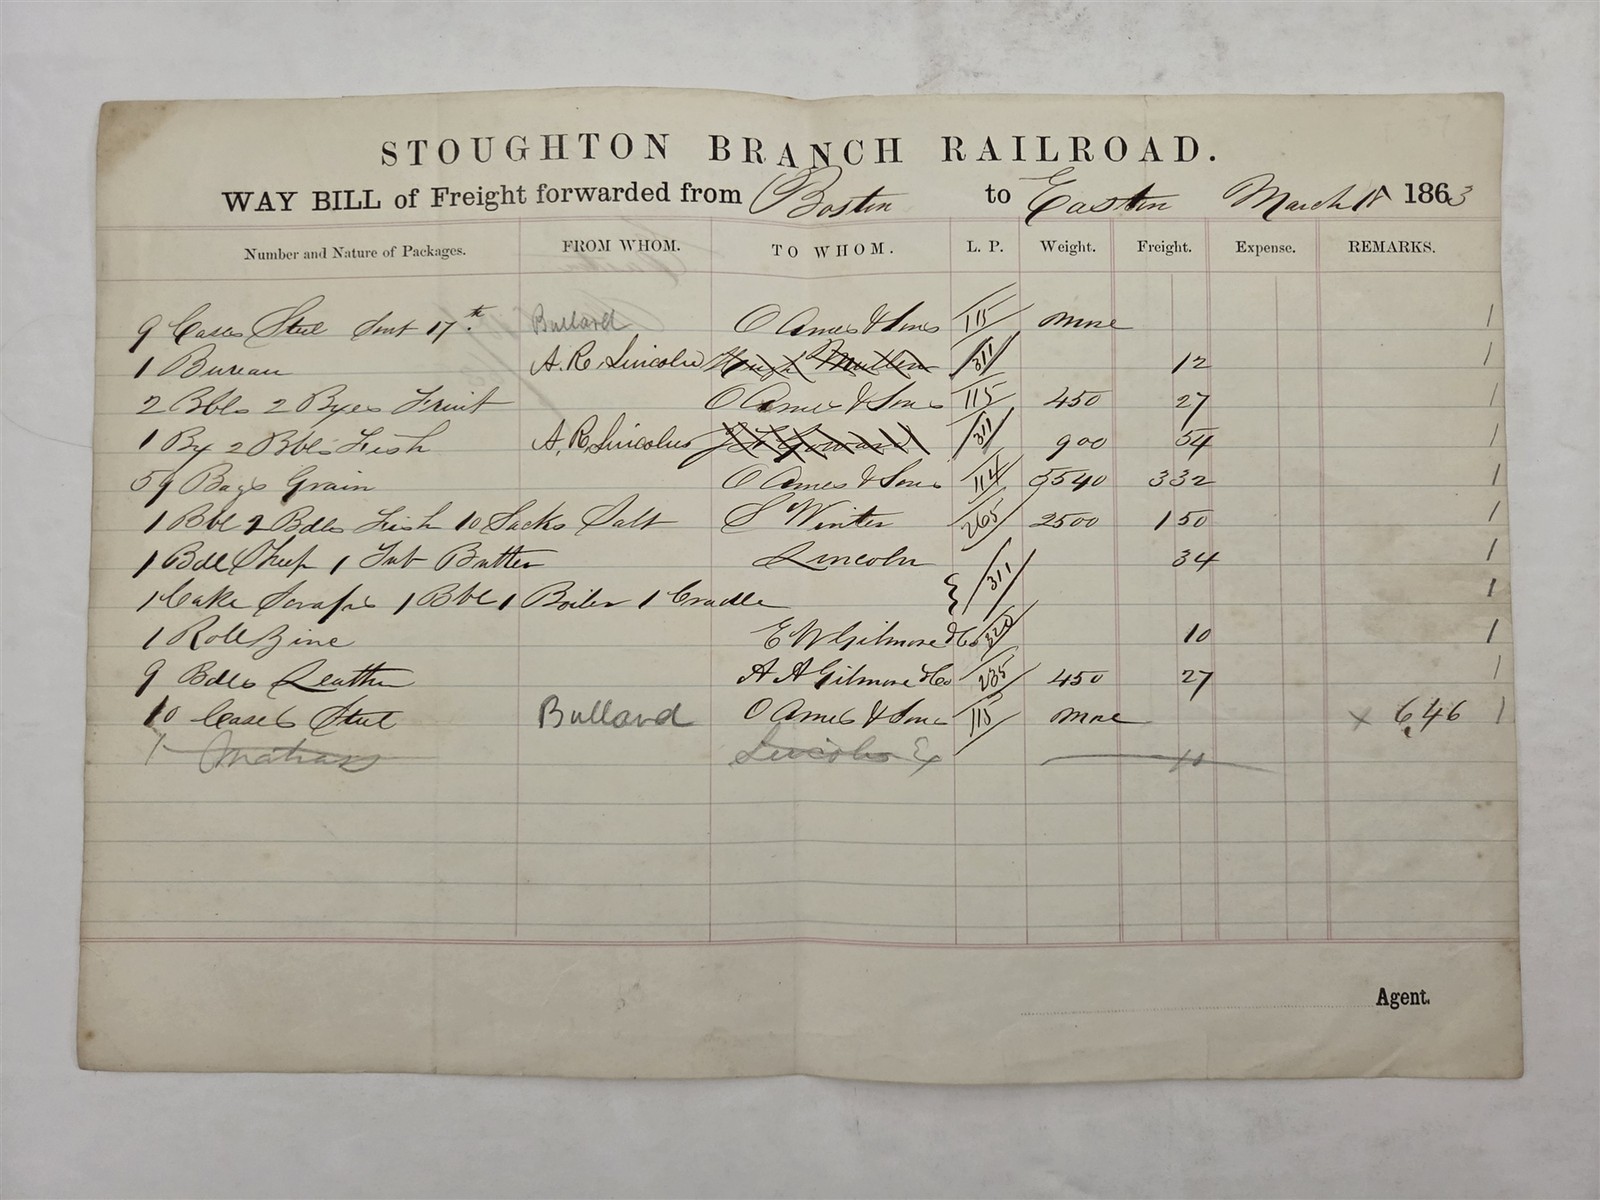 STOUGHTON BRANCH RAILROAD.
WAY BILL of Freight forwarded from Boston to Easton March 18 1863
Number and Nature of Packages. FROM WHOM. TO WHOM. L. P. Weight. Freight. Expense. REMARKS.
9 Cases Steel Sent 17th. Bullard O Ames & Sons 115 more 1
1 Bureau A. R. Lincoln Hugh Mullen 311 12 1
2 Bbls 2 Bxes Fruit O Ames & Sons 115 450 27 1
1 Bx 2 Bbls Fish A. R. Lincoln 311 900 54 1
59 Bags Grain O Ames & Sons 114 5540 332 1
1 Bbl 2 Bdls Fish 10 Sacks Salt S Winter 265 2500 150 1
1 Bdl 1 Tub Butter Lincoln 34 1
1 Cake Scraps 1 Bbl 1 Boiler 1 Cradle 311 1
1 Roll Zinc E W Gilmore & Co 320 10 1
9 Bdls Leather A A Gilmore & Co 235 450 27 1
10 Cases Steel Bullard O Ames & Sons 115 more x 6,46 1
1 Matrass Lincoln Ex 10
Agent.